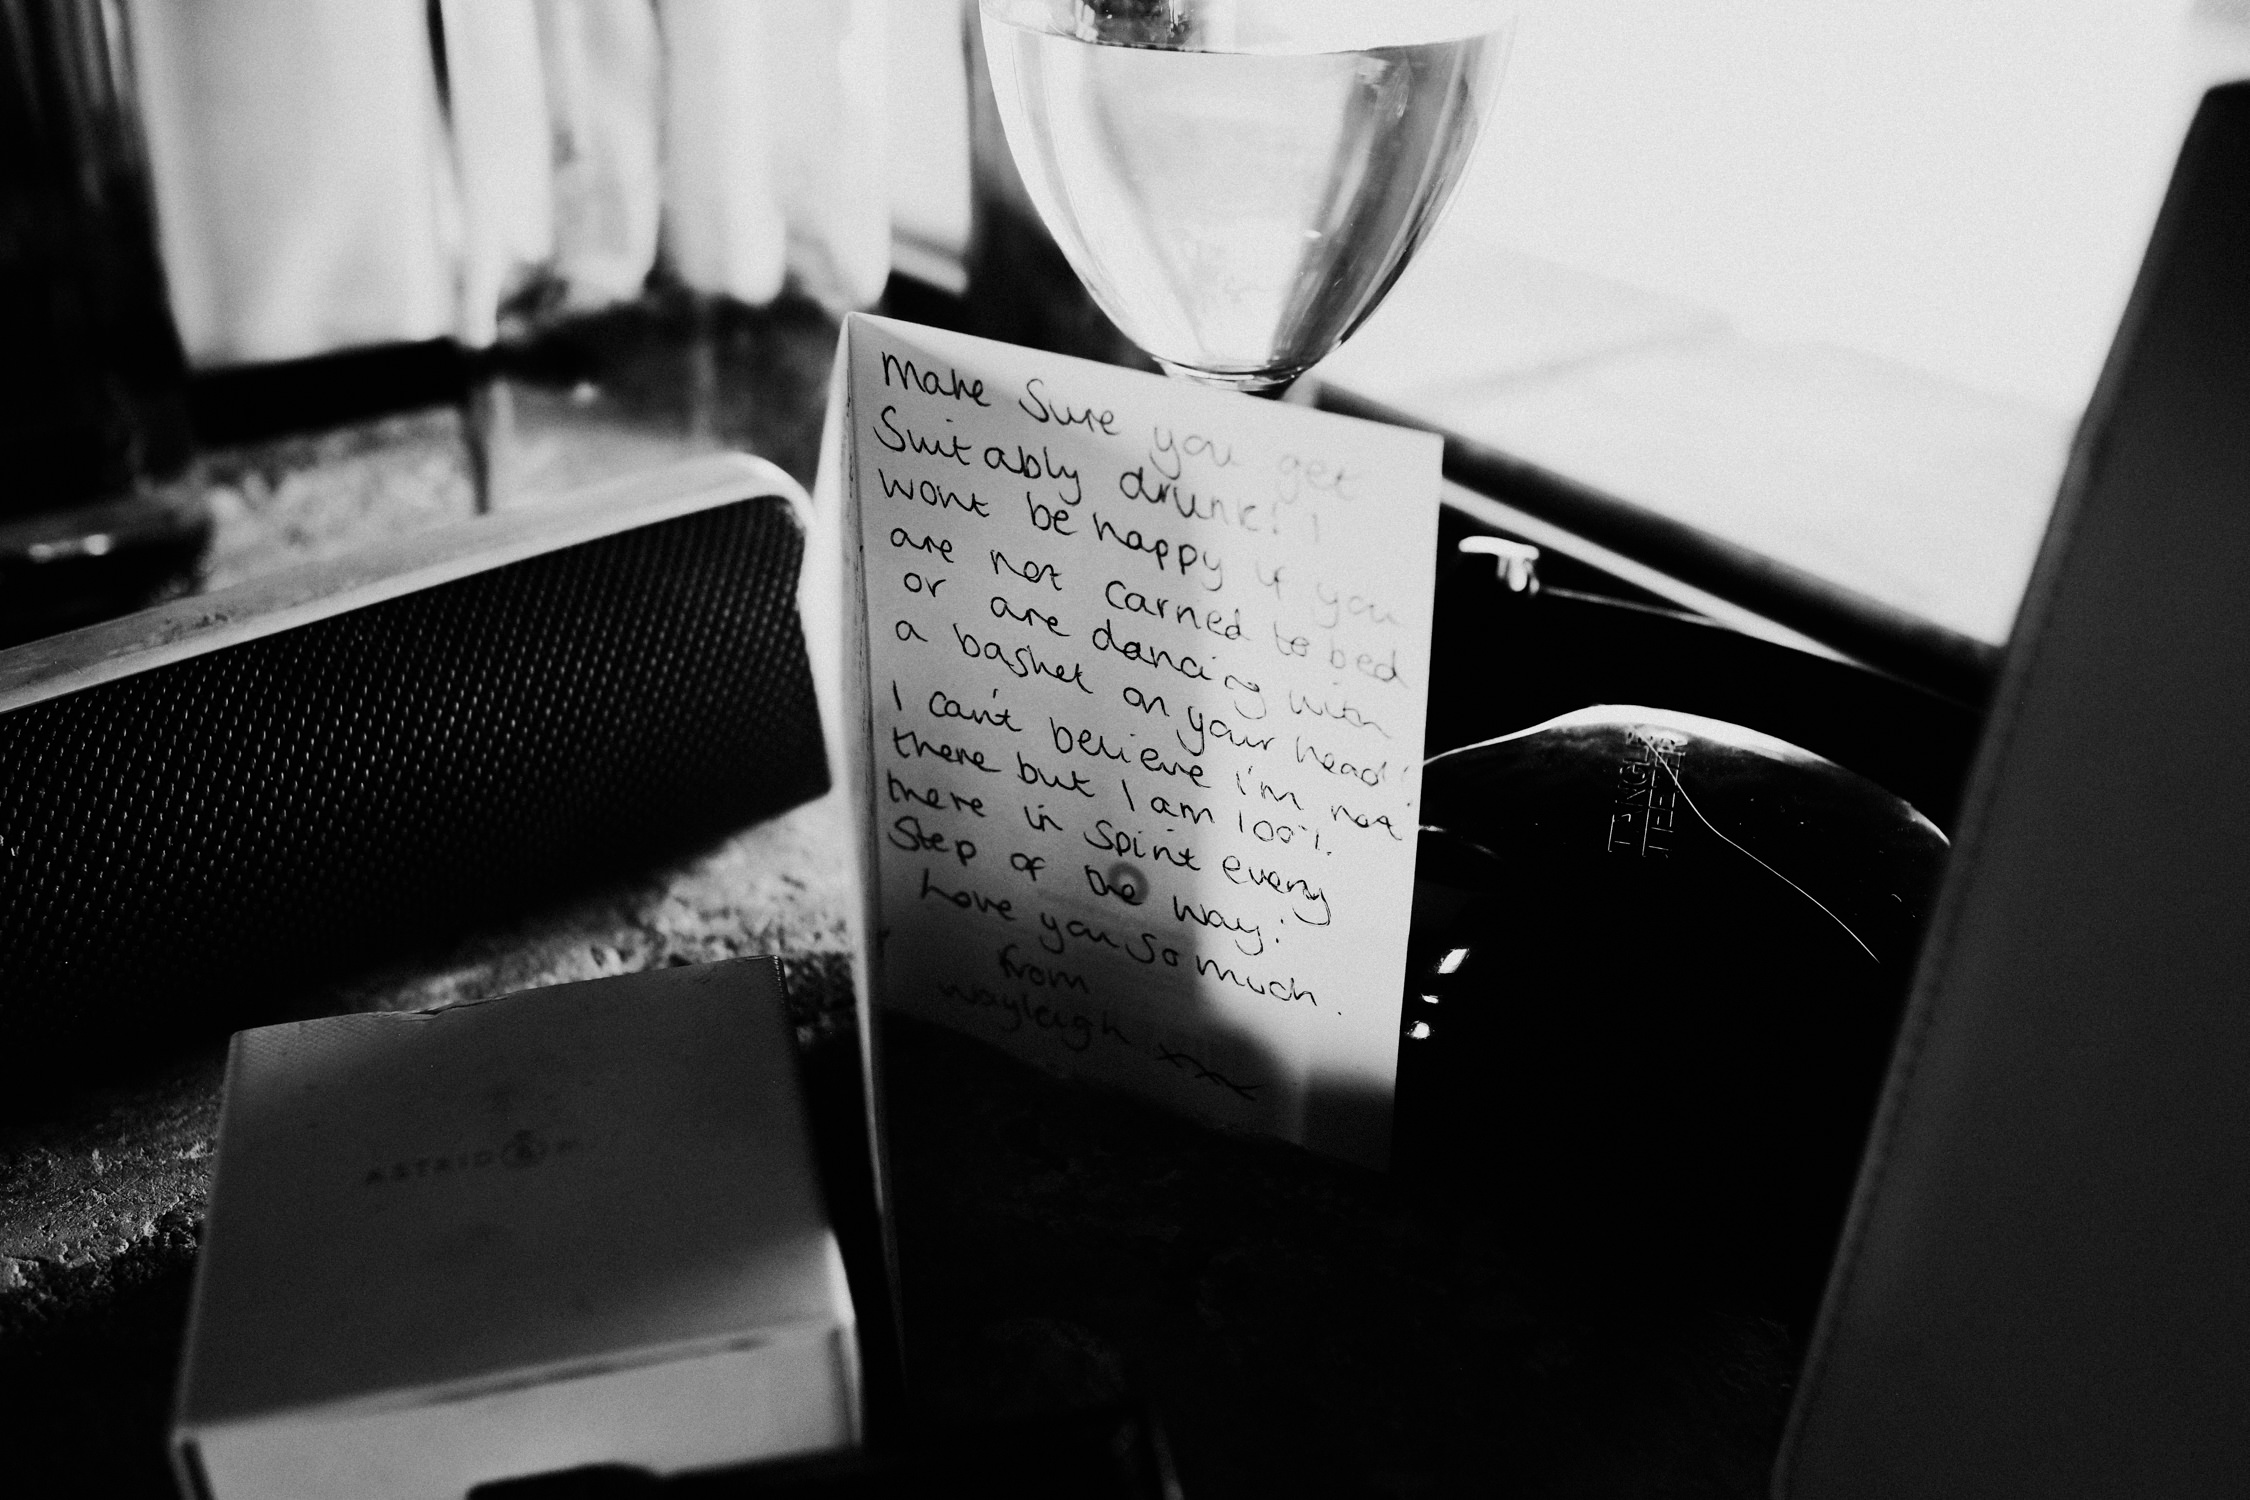 Make Sure you get
Suitably drunk! I
wont be happy if you
are not carried to bed
or are dancing with
a basket on your head!
I can't believe i'm not
there but I am 100%
there in spirit every
Step of the way!
Love you so much.
from
Wayleigh xxx
ASTRID & M
TANGLE
TEEZER